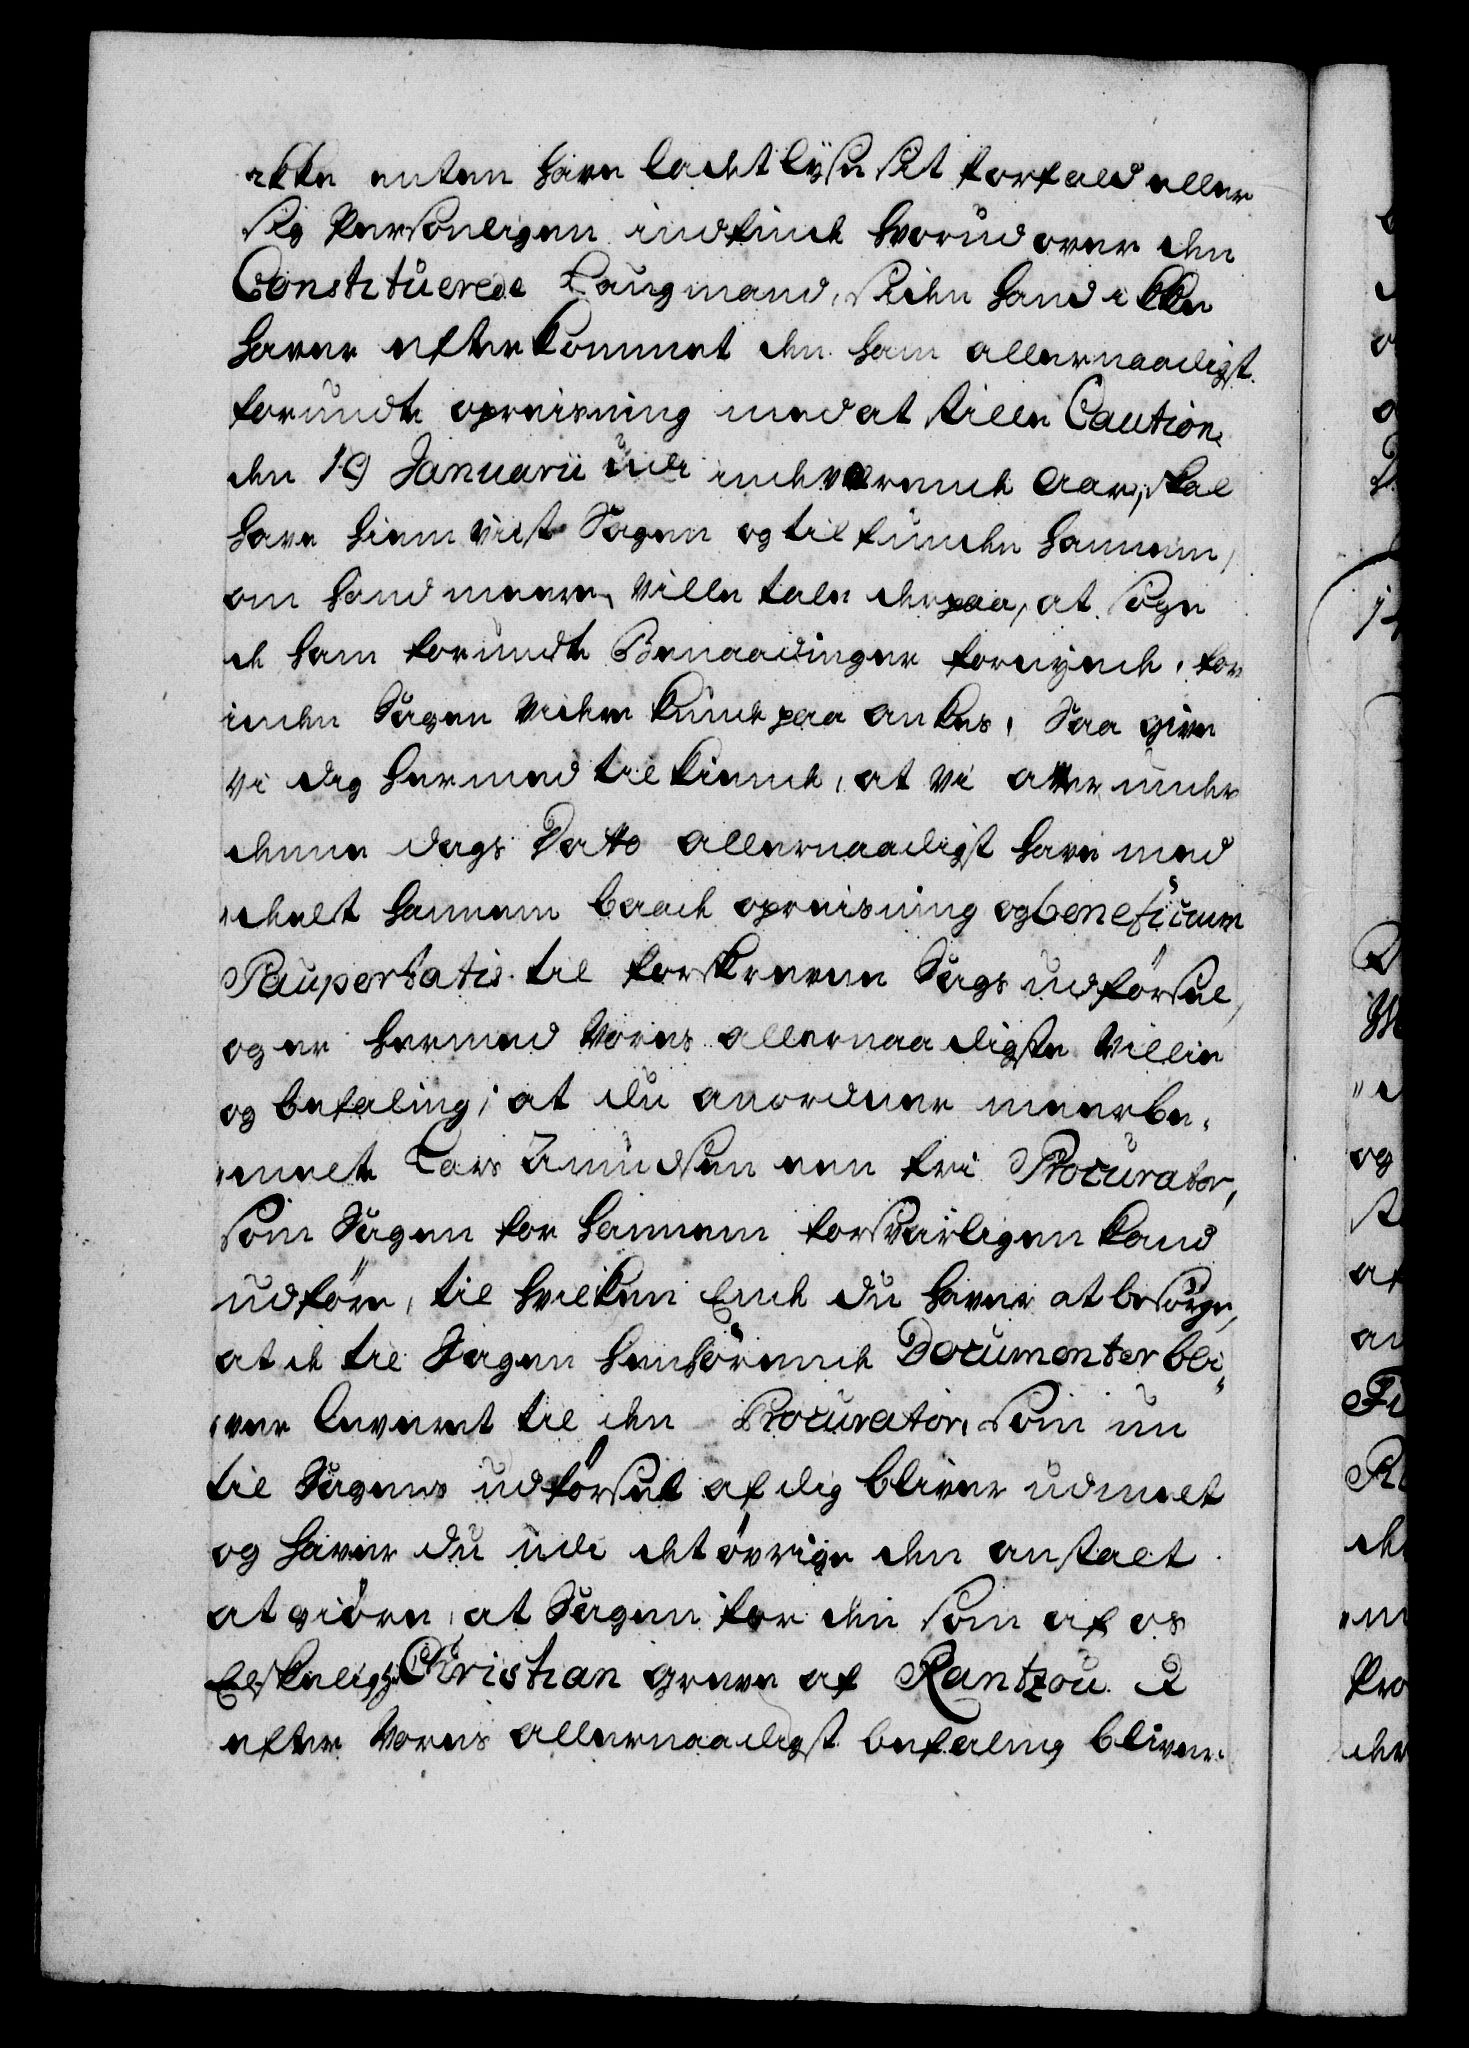 ikke enten have ladet lyse sit forfald eller
sig Personligen indfinde hvorudover den
Constituerede Laugmand, siden hand ikke
haver efterkommet den ham allernaadigst
forundte opreisning med at stille Caution
den 19 Januarii udi indeværende Aar, skal
have hiemviist Sagen og tilfunden hannem,
om hand meere ville tale derpaa, at søge
de ham forundte Benaadinger fornyede, for
inden Sagen videre kunde paa ankes, Saa give
vi dig hermed tilkiende, at vi atter under
denne dags Dato allernaadigst have med
deelt hannem baade opreisning og beneficium
Paupertatis til forskrevne Sags udførsel,
og er hermed Vores allernaadigste Villie
og befaling, at du anordner meerbe,
meelte Lars Amudsen een fri Procurator,
som Sagen for hannem forsvarligen kand
udføre, til hvilken Ende du haver at besørge,
at de til Sagen henhørende Documenter bli„
„ver leveret til den Procurator, som nu
til Sagens udførsel af dig bliver udmelt
og haver du udi det øvrige den anstalt
at giøre, at Sagen for den som af os
Elskelig Christian greve af Rantzou
efter Vores allernaadigst befaling bliver